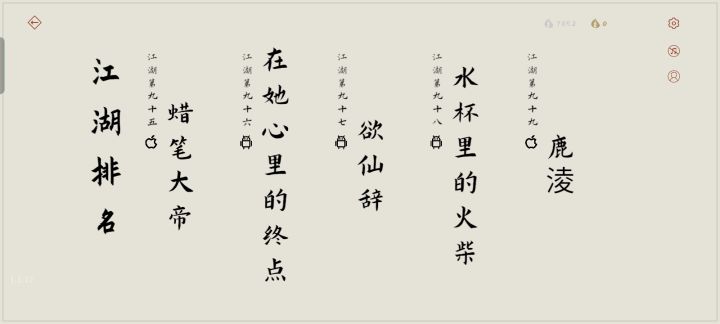 江湖排名
江湖第九十五
蜡笔大帝
江湖第九十六
在她心里的终点
江湖第九十七
欲仙辞
江湖第九十八
水杯里的火柴
江湖第九十九
鹿淩
0